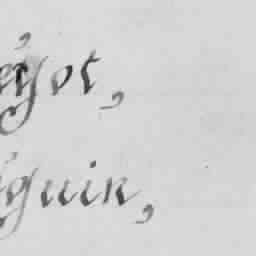 égot,
guin,